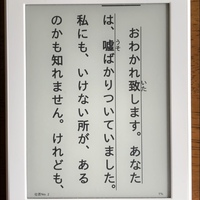 おわかれ致します。あなた
は、嘘ばかりついていました。
私にも、いけない所が、ある
のかも知れません。けれども、